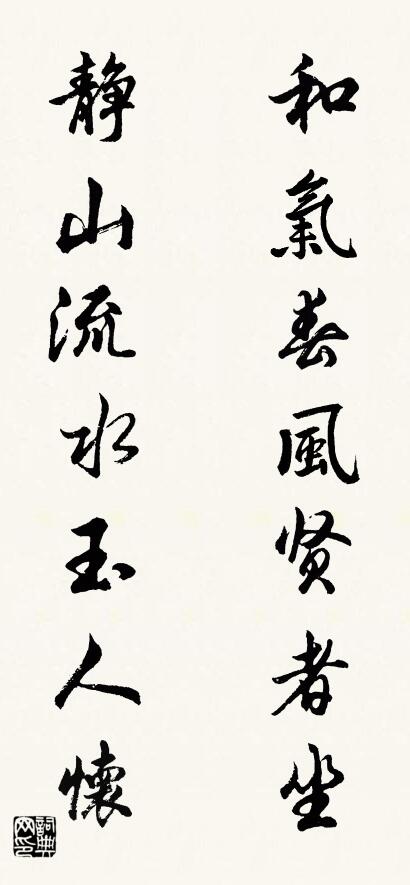 和氣春風贤者坐
静山流水玉人懷
詞典网印